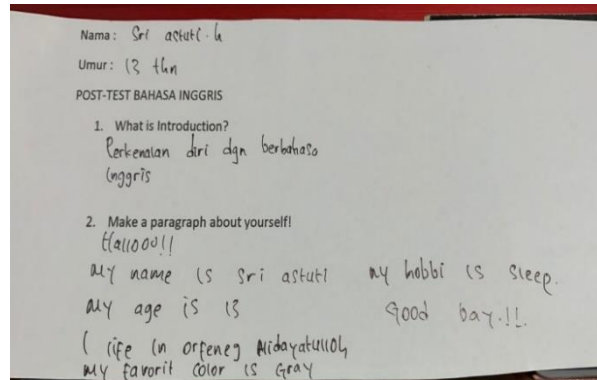 Nama : Sri astuti . h
Umur : 13 thn
POST-TEST BAHASA INGGRIS
1. What is Introduction?
Perkenalan diri dgn berbahasa
Inggris
2. Make a paragraph about yourself!
Hallooo!!
my name is sri astuti
my age is 13
I life in orfeneg Hidayatulloh
my favorit color is Gray
my hobbi is sleep.
Good bay.!!.